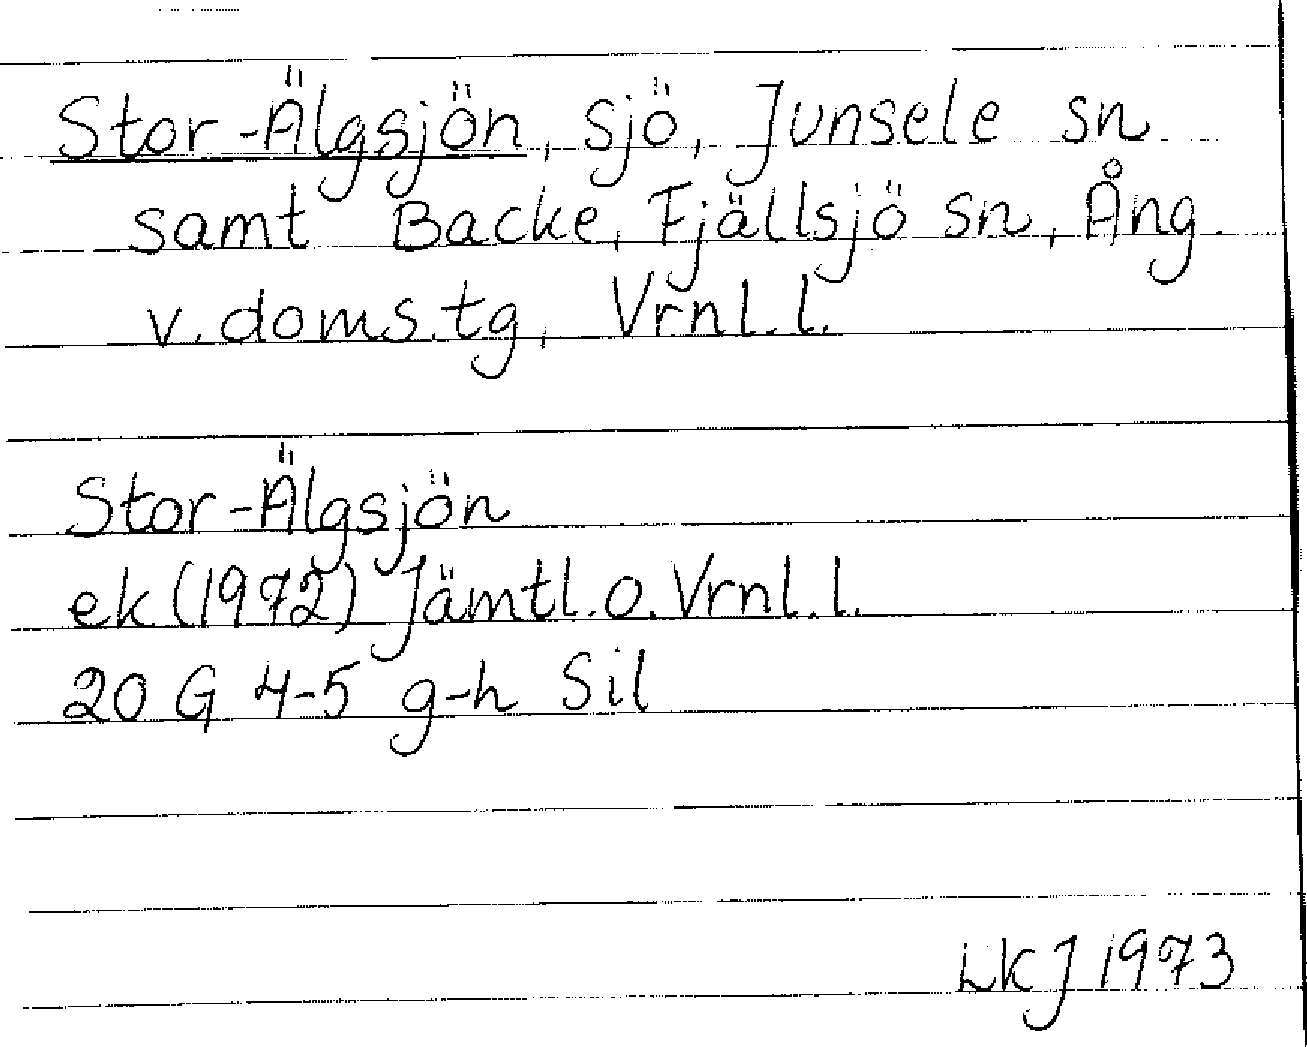 Stor-Älgsjön, sjö, Junsele sn
samt Backe, Fjällsjö sn, Ång.
v. doms.tg, Vrnl.l.
Stor-Älgsjön
ek (1972) Jämtl. o. Vrnl. l.
20 G 4-5 g-h Sil
LKJ 1973